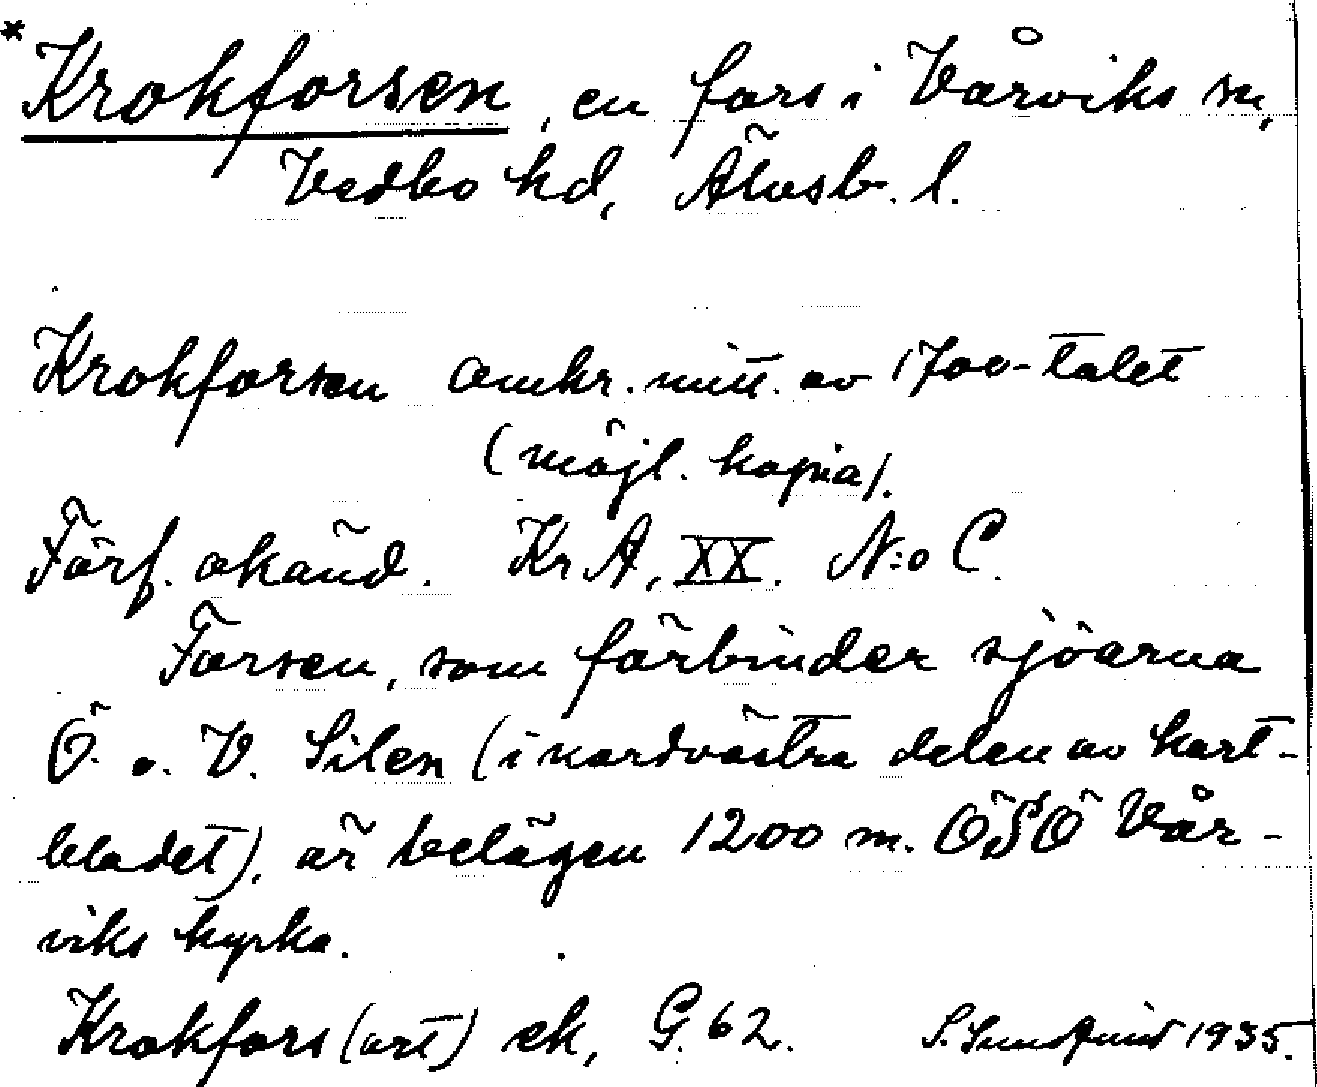 * Krokforsen, en fors i Vårviks sn,
Vedbo hd, Älvsb. l.
Krokforsen Omkr. mitt. av 1700-talet
(möjl. kopia).
Förf. okänd. Kr A, XX. N:o C.
Forsen, som förbinder sjöarna
Ö. o. V. Silen (i nordvästra delen av kart-
bladet), är belägen 1200 m. ÖSÖ Vår-
viks kyrka.
Krokfors (ort) ek, G. 62. S. Sundquist 1935.